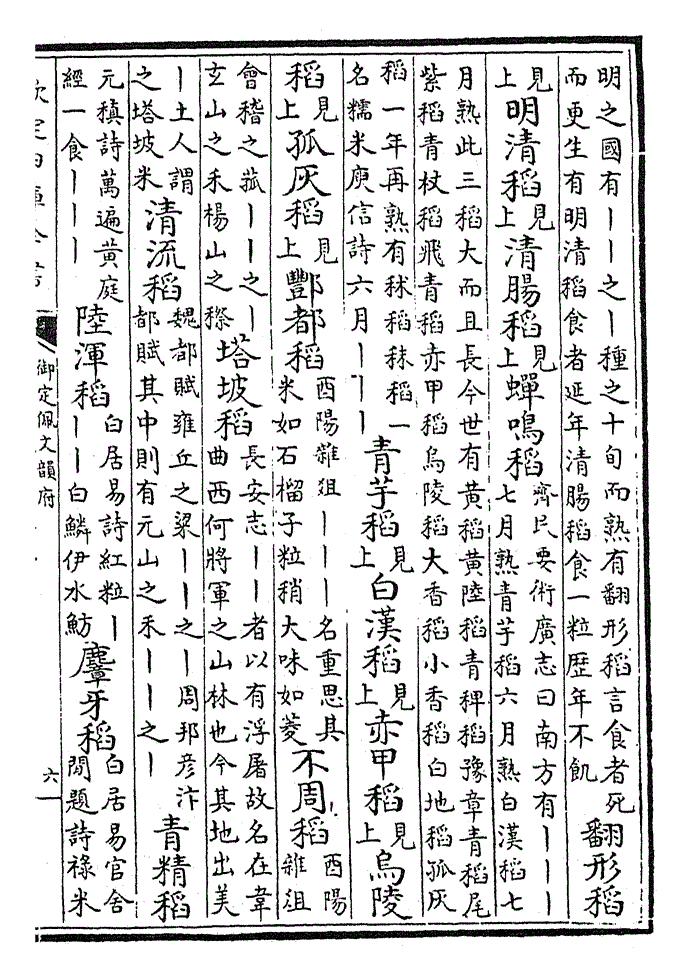 明之國有丨丨之丨種之十旬而熟有翻形稻言食者死而更生有明清稻食者延年清腸稻食一粒歷年不飢翻形稻
見上明清稻見上清腸稻見上蟬鳴稻齊民要術廣志曰南方有丨丨丨七月熟青芋稻六月熟白漢稻七
月熟此三稻大而且長今世有黄稻黄陸稻青稗稻豫章青稻尾紫稻青杖稻飛青稻赤甲稻烏陵稻大香稻小香稻白地稻孤灰
稻一年再熟有秫稻秣稻一名糯米庾信詩六月丨丨丨青芋稻見上白漢稻見上赤甲稻見上烏陵
稻見上孤灰稻見上酆都稻酉陽雜俎丨丨丨名重思其米如石榴子粒稍大味如菱不周稻酉陽雜俎
會稽之菰丨丨之丨玄山之禾楊山之穄塔坡稻長安志丨丨者以有浮屠故名在韋曲西何將軍之山林也今其地出美
丨土人謂之塔坡米清流稻魏都賦雍丘之粱丨丨之丨周邦彦汴都賦其中則有元山之禾丨丨之丨青精稻
元稹詩萬遍黄庭經一食丨丨丨陸渾稻白居易詩紅粒丨丨丨白鱗伊水魴麞牙稻白居易官舍閒題詩祿米
欽定四庫全書
御定佩文韻府
六